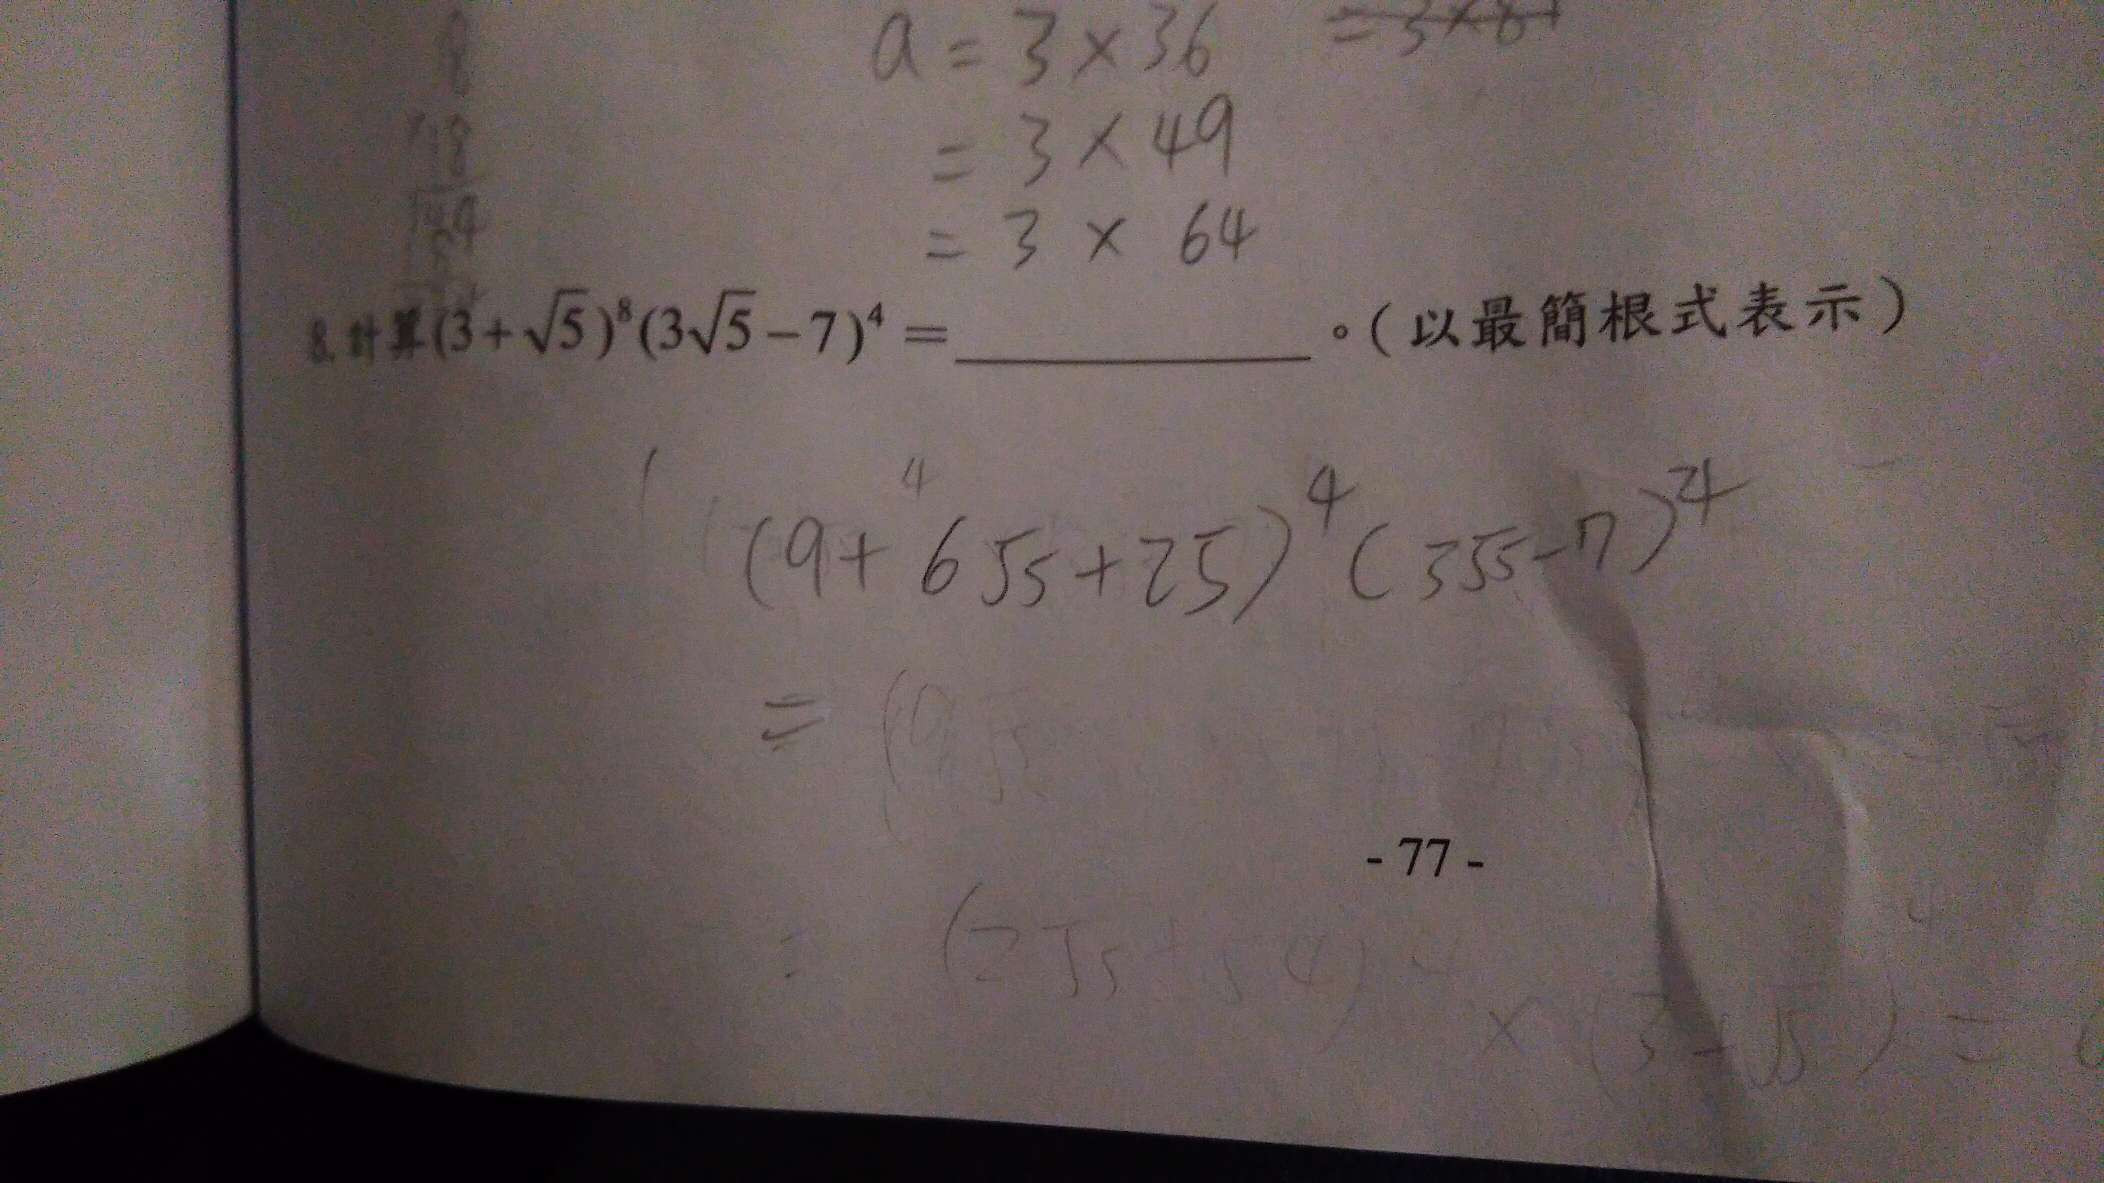 a = 3 × 36 = 3 × 81
= 3 × 49
= 3 × 64
8. 計算(3+√5)⁸(3√5−7)⁴ = ________ 。(以最簡根式表示)
4
(9+6√5+25)⁴(3√5−7)⁴
=
- 77 -
= (2√5+54)
× (3-√5)⁴ =